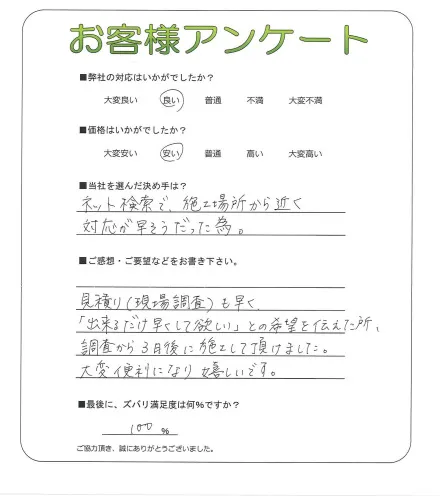 お客様アンケート
■弊社の対応はいかがでしたか？
大変良い 良い 普通 不満 大変不満
■価格はいかがでしたか？
大変安い 安い 普通 高い 大変高い
■当社を選んだ決め手は？
ネット検索で、施工場所から近く
対応が早そうだった為。
■ご感想・ご要望などをお書き下さい。
見積り(現場調査)も早く、
「出来るだけ早くして欲しい」との希望を伝えた所、
調査から3日後に施工して頂けました。
大変便利になり嬉しいです。
■最後に、ズバリ満足度は何%ですか？
100 %
ご協力頂き、誠にありがとうございました。